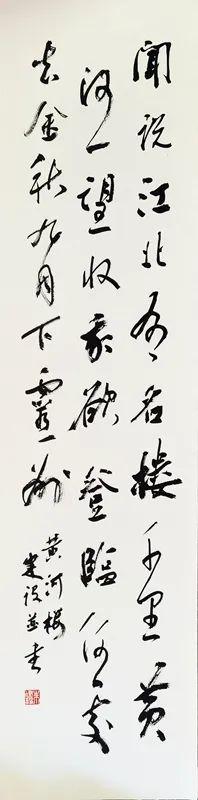 闻说江北有名楼千里黄
河一望收我欲登临何处
去金秋九月下霸州
黄河楼
朱设并书